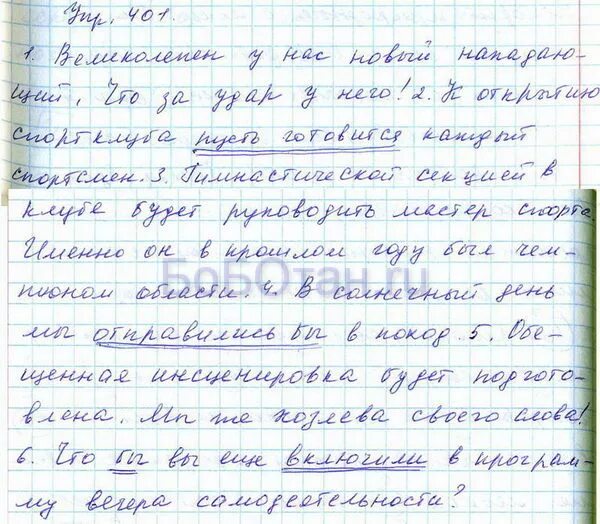 Упр. 401.
1. Великолепен у нас новый нападаю-
щий, Что за удар у него! 2. К открытию
спортклуба пусть готовится каждый
спортсмен. 3. Гимнастической секцией в
клубе будет руководить мастер спорта.
Именно он в прошлом году был чем-
пионом области. 4. В солнечный день
мы отправились бы в поход. 5. Обе-
щенная инсценировка будет подгото-
влена. Мы же хозяева своего слова!
6. Что бы вы еще включили в програм-
му вечера самодеятельности?
БоБОтан.ru